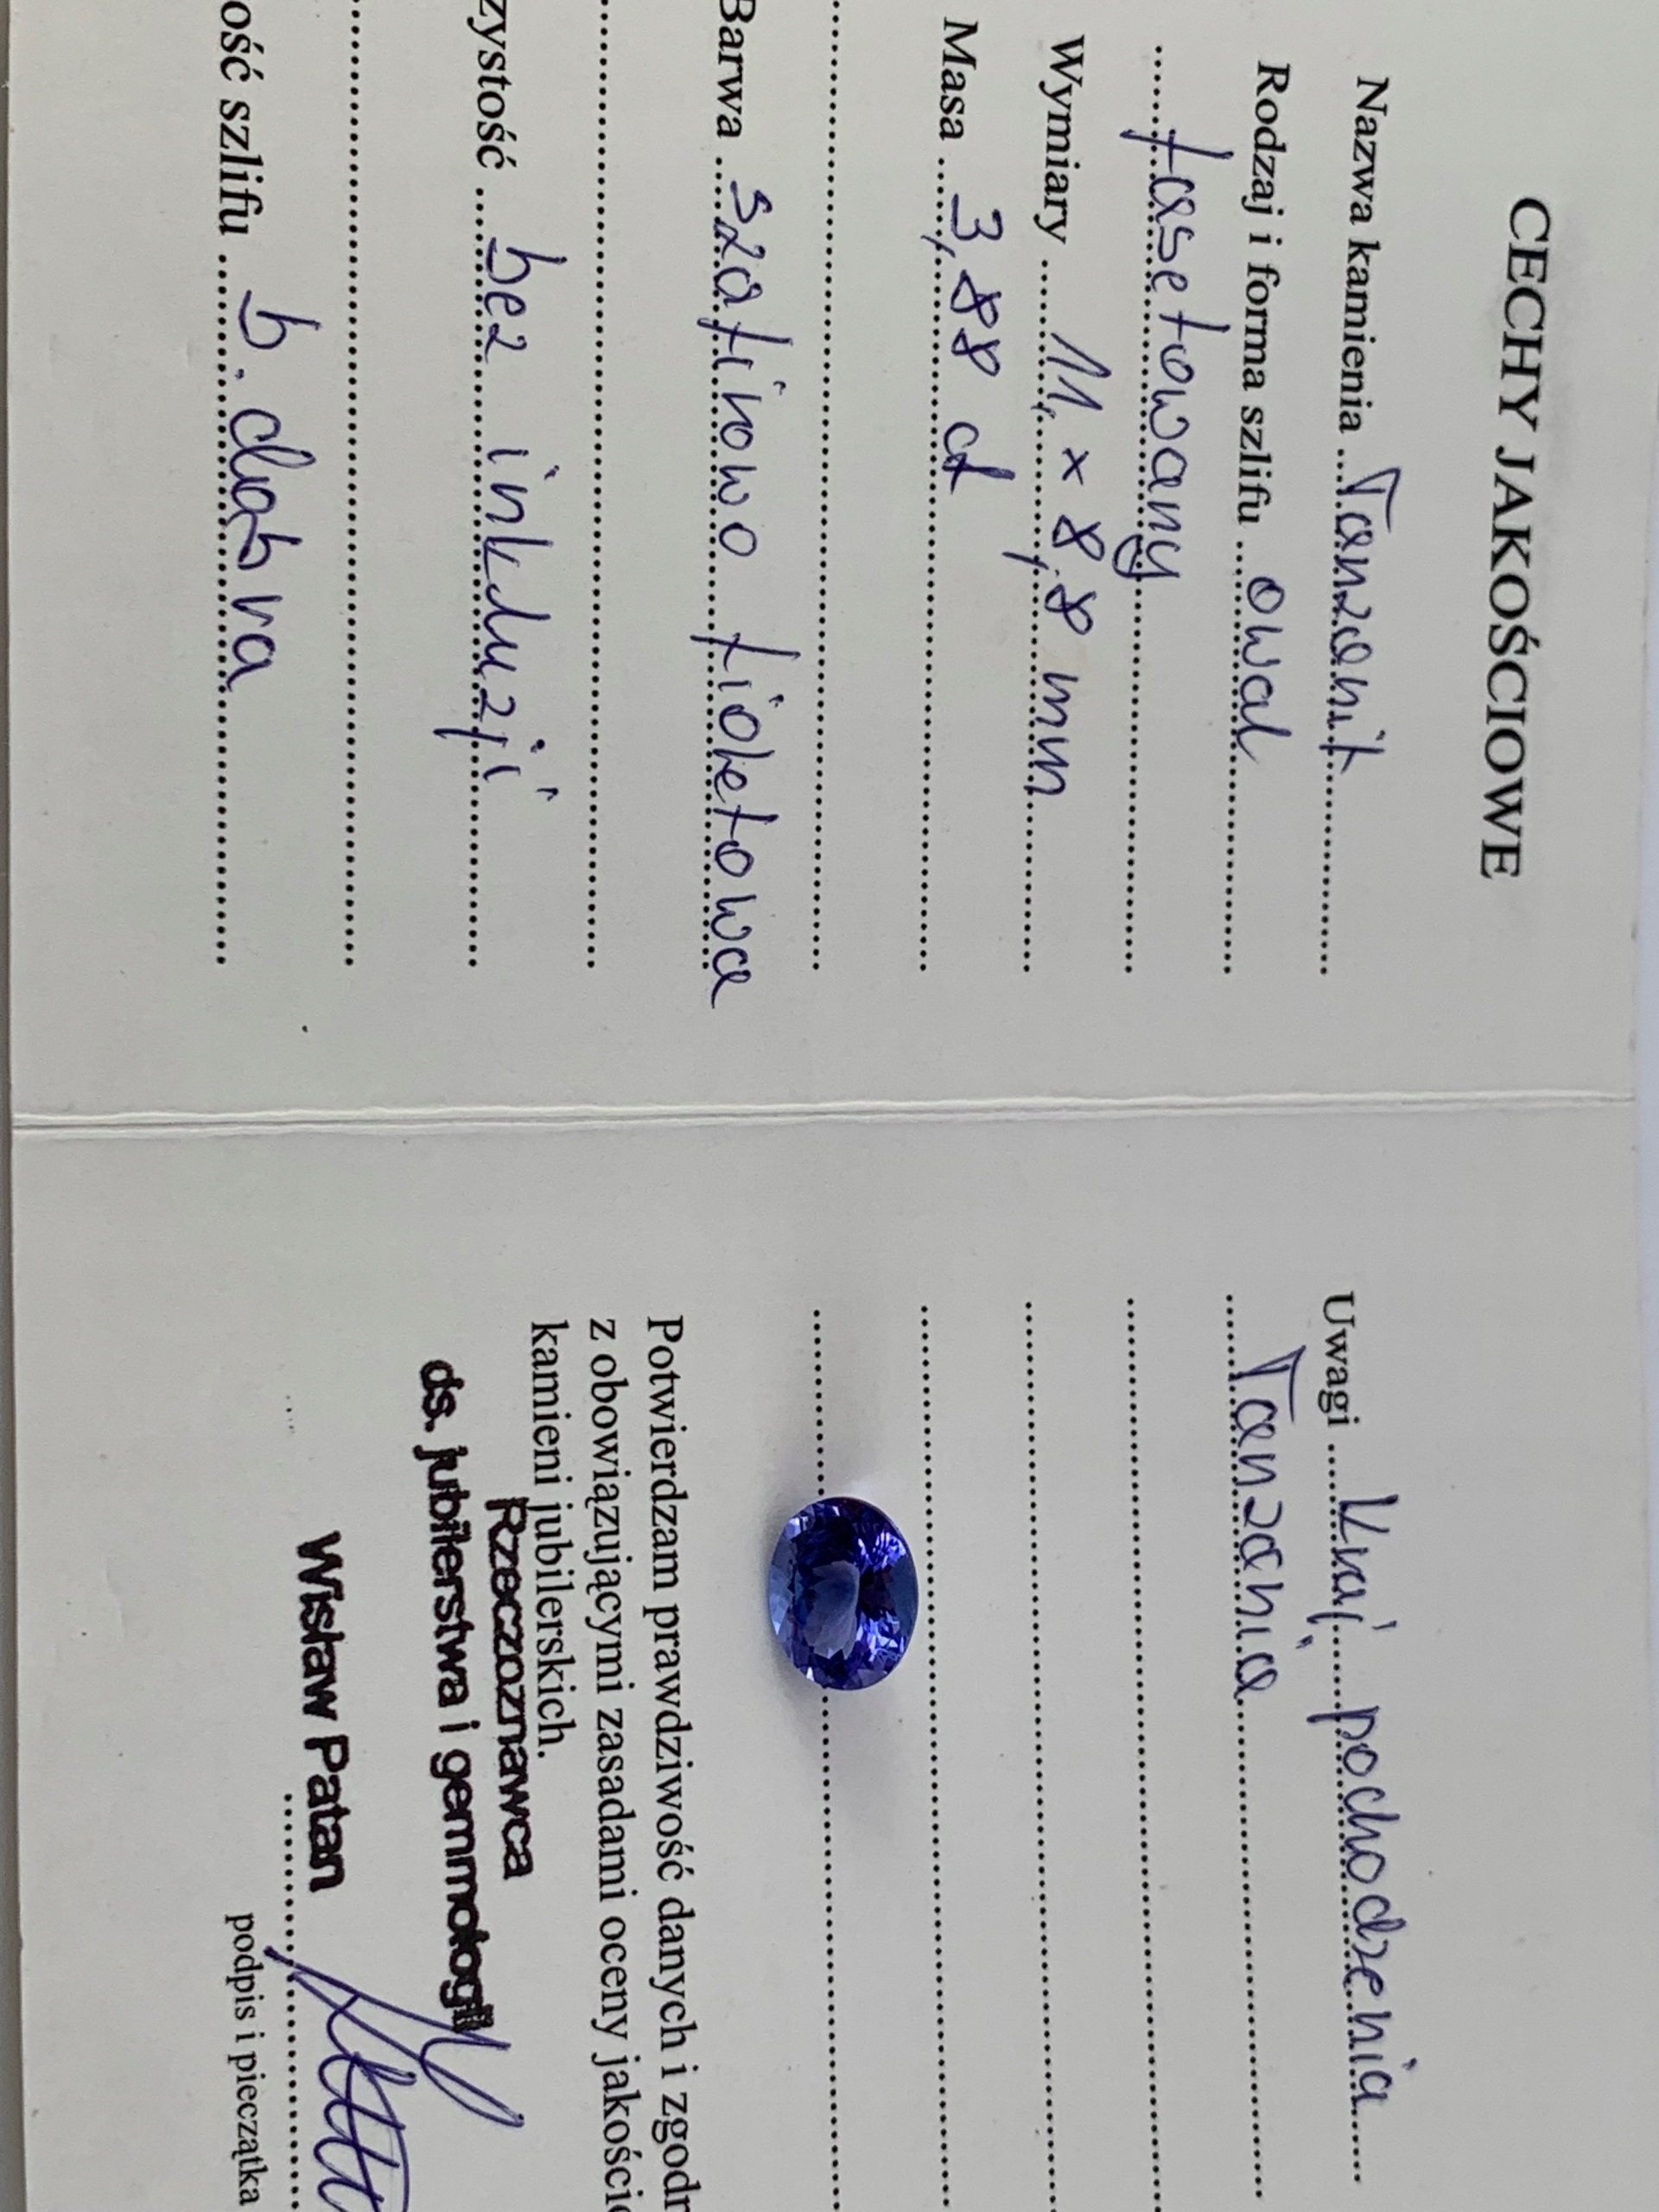 CECHY JAKOŚCIOWE
Nazwa kamienia ...Tanzanit...
Rodzaj i forma szlifu ...owal...
...fasetowany...
Wymiary ...11, × 8,8 mm...
Masa ...3,88 ct...
Barwa ...szafirowo fioletowa
zystość ...bez inkluzji...
ość szlifu ...b. dobra...
Uwagi ...Kraj pochodzenia...
...Tanzania...
Potwierdzam prawdziwość danych i zgodn
z obowiązującymi zasadami oceny jakości
kamieni jubilerskich.
Rzeczoznawca
ds. jubilerstwa i gemmologii
Wisław Patan
podpis i pieczątka